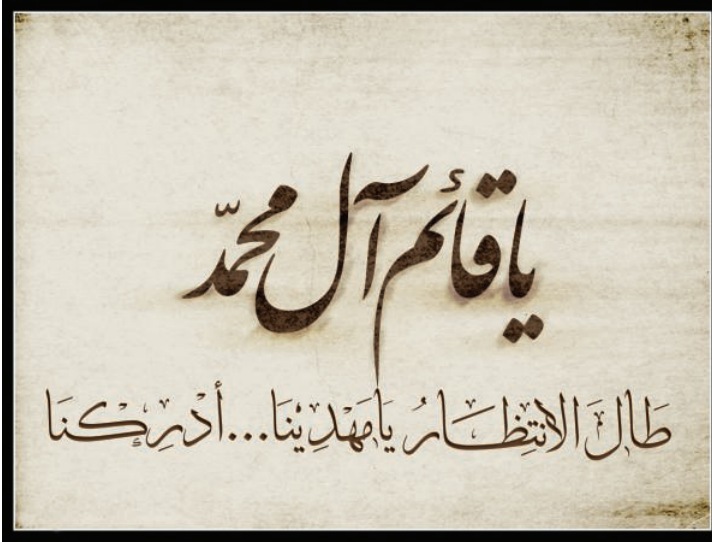 ياقائم آل محمّد
طَالَ الانتِظَارُ يَامَهْدِيْنَا...أدْرِكْنَا